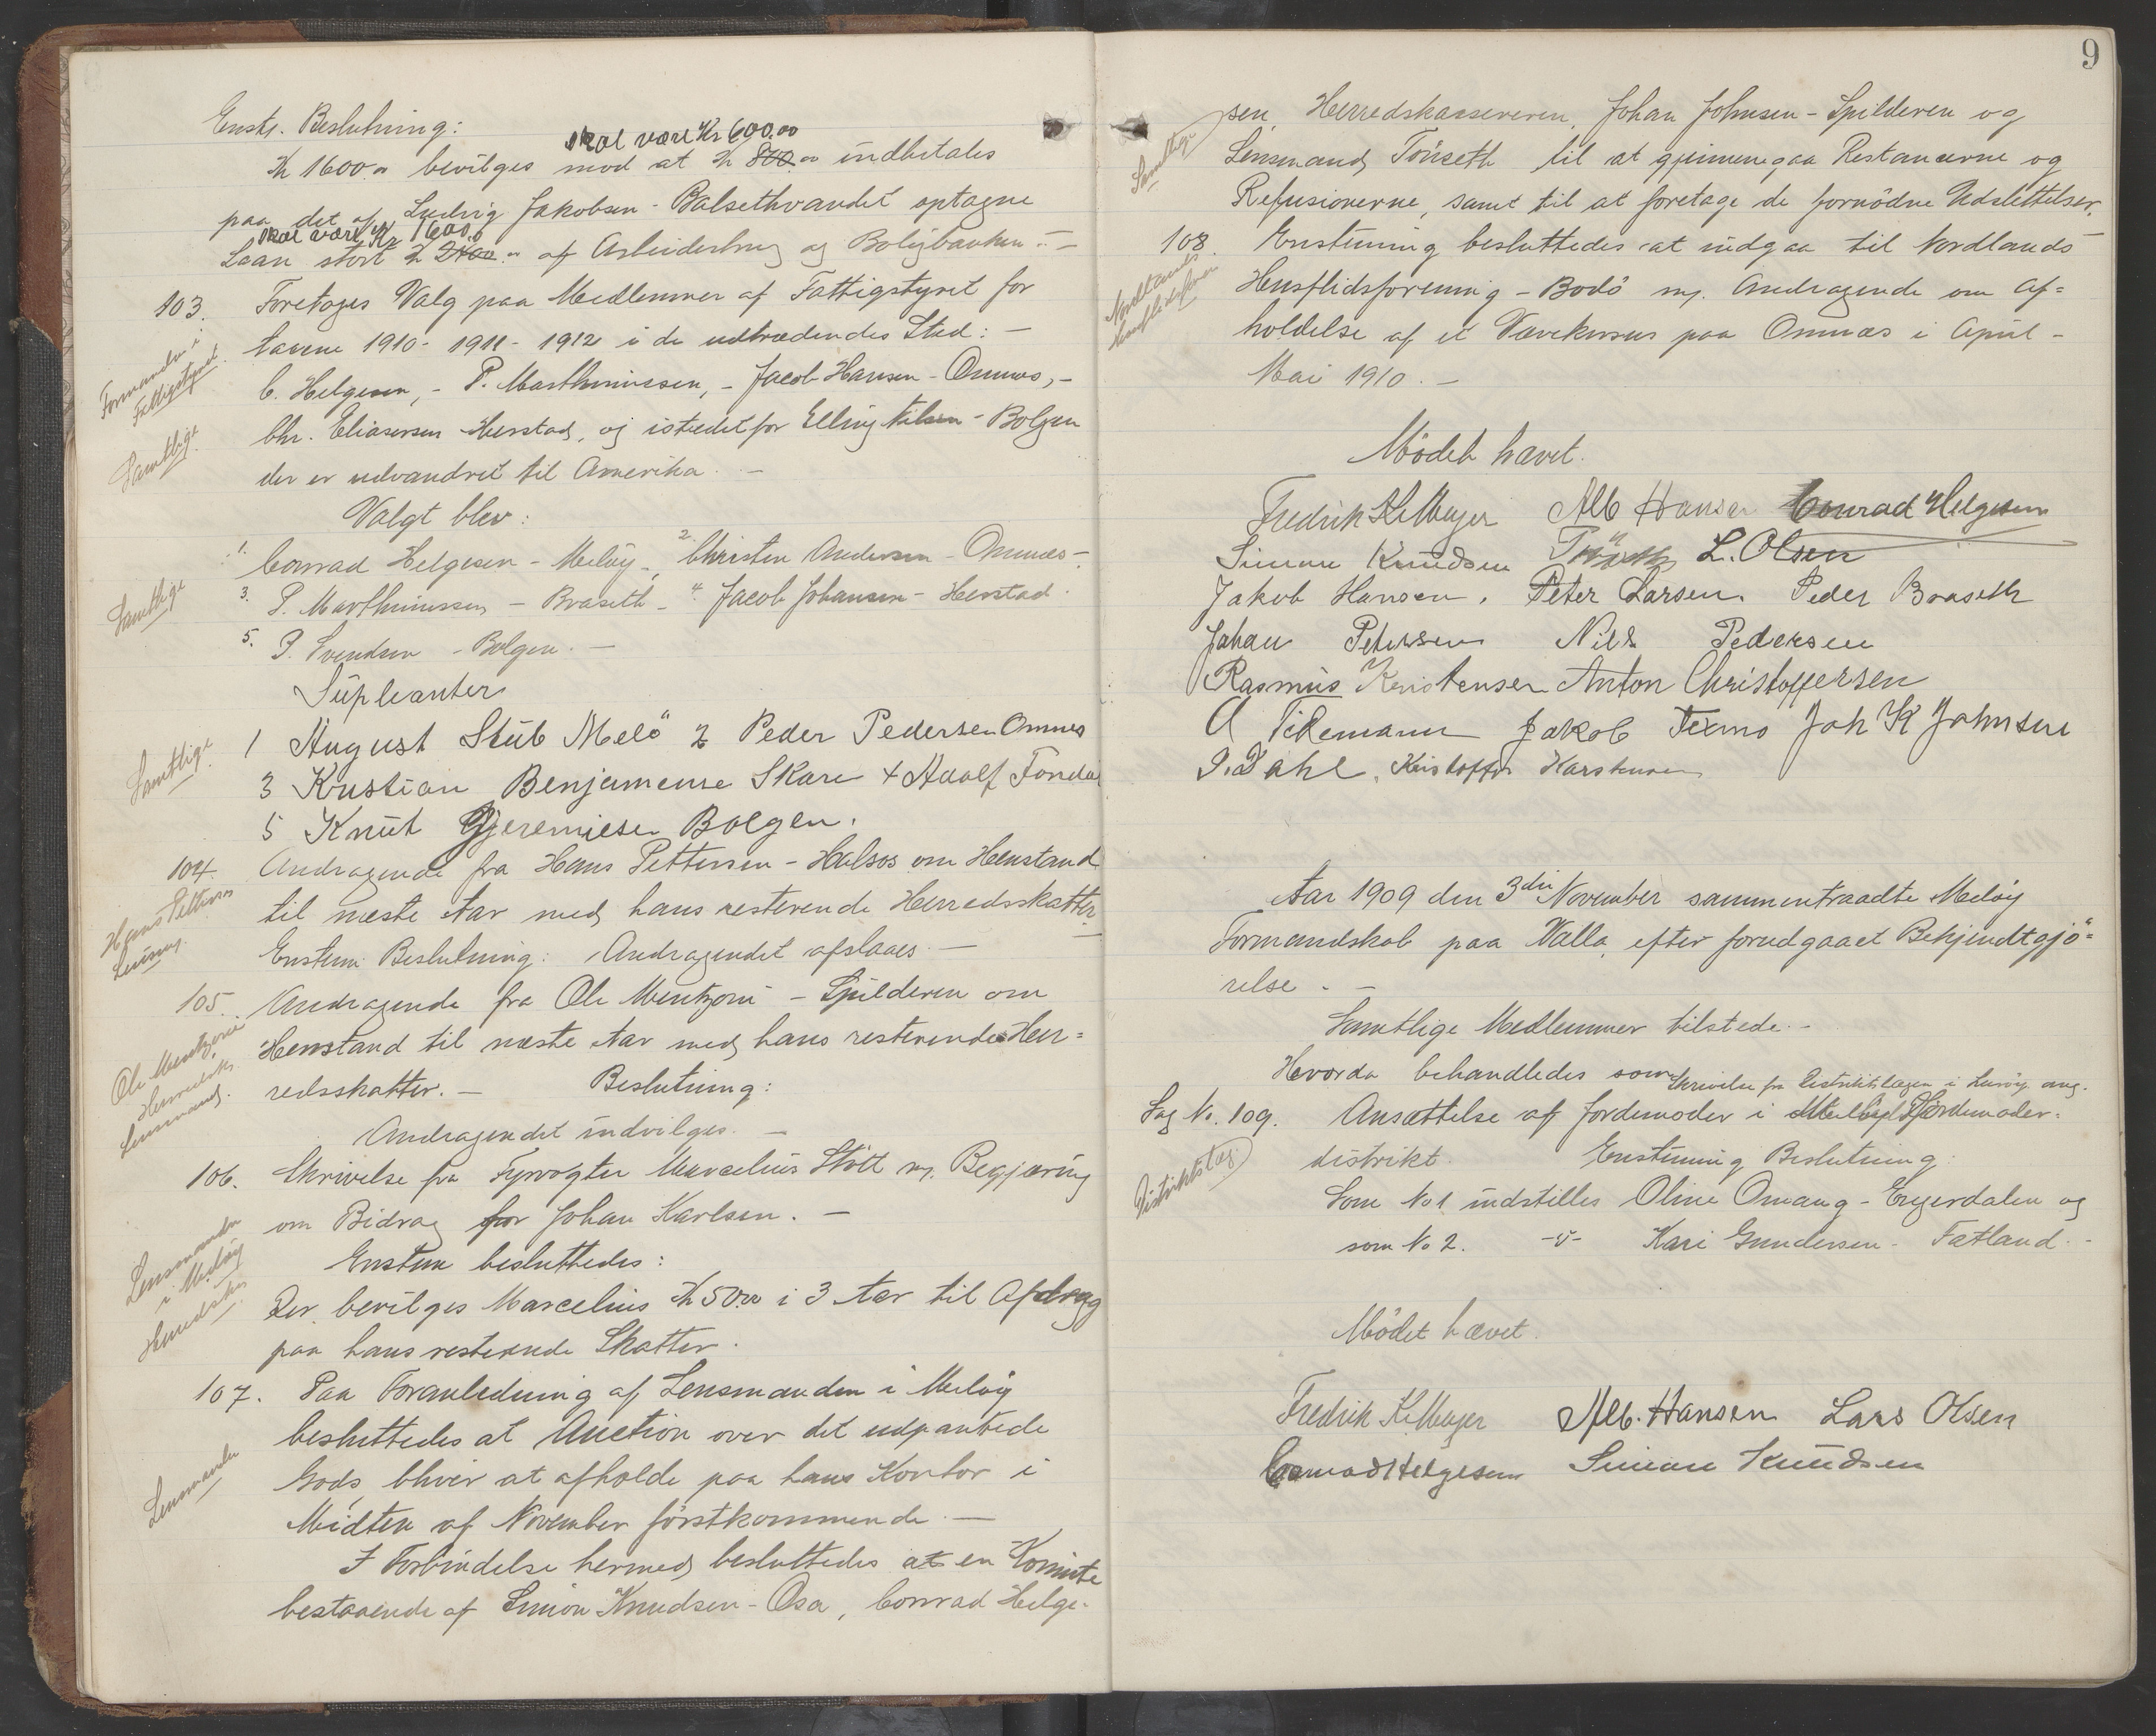 Enst. Beslutning:
skal være Kr 600.00
Kr 1600.00 bevilges mod at Kr 800.00 indbetales
paa det af Ludvig Jakobsen - Balsethvandet optagne
skal være Kr 1600.0
Laan stort Kr 2400.00 af Arbeiderbrug og Boligbanken. -
103. Foretoges Valg paa Medlemmer af Fattigstyret for
Formanden i
Fattigstyret.
Aarene 1910 - 1911 - 1912 i de udtrædendes Sted: -
C. Helgesen, - P. Marthinussen, - Jacob Hansen - Ørnes, -
Samtlige
Chr. Eliasersen Herstad, og istedetfor Elling Nilsen - Bolgen
der er udvandret til Amerika. -
Valgt blev:
1. Conrad Helgesen - Meløy -, 2. Christen Andersen - Ørnes -
Samtlige
3. P. Marthinussen - Braseth - 4. Jacob Johansen - Herstad.
5. P. Svendsen - Bolgen. -
Süpleanter
1 August Stüb Melö 2 Peder Pedersen Ørnes
Samtlige
3 Kristian Benjamense Skare 4 Adolf Fondal
5 Knüt Gjeremiese Bolgen.
104. Andragende fra Hans Pettersen - Halsos om Henstand
Hans Pettersen
Lensm.
til næste Aar med hans resterende Herredsskatter.
Enstem. Beslutning: Andragendet afslaaes. -
105. Andragende fra Ole Mentzoni - Spilderen om
Ole Mentzoni
Herredsk.
Lensmand.
Henstand til næste Aar med hans resterende Her=
redsskatter. - Beslutning:
Andragendet indvilges. -
106. Skrivelse fra Fyrvogter Marcelius Stött m. Begjæring
om Bidrag for Johan Karlsen. -
Lensmanden
i Meløy
Herredsk.
Enstem besluttedes:
Der bevilges Marcelius Kr 50.00 i 3 Aar til Afdrag
paa hans resterende Skatter.
107. Paa Foranledning af Lensmanden i Meløy
besluttedes at Auction over det udpantede
Lensmanden
Gods bliver at afholde paa hans Kontor i
Midten af November førstkommende. -
I Forbindelse hermed besluttedes at en Komite
bestaaende af Simon Knudsen - Osa, Conrad Helge-
9
Samtlige
sen, Herredskassereren, Johan Johnsen - Spilderen og
Lensmand Tönseth til at gjennemgaa Restancerne og
Refusionerne, samt til at foretage de fornödne Udslettelser.
108. Enstemmig besluttedes at indgaa til Nordlands
Nordlands
Husflidsforen
Husflidsforening - Bodö m. Andragende om Af=
holdelse af et Vævekursus paa Ørnes i April -
Mai 1910. -
Mödet hævet.
Fredrik K. Meyer Alb Hansen Conrad Helgesen
Simon Knüdsen L. Olsen
Jakob Hansen. Peter Larsen. Peder Braseth
Johan Petersen Nils Pedersen
Rasmüs Kristensen Anton Christoffersen
A Tidemann Jakob Texmo Joh K Johnsen
P. Dahl. Kristoffer Karstensen
Aar 1909 den 3die November sammentraadte Meløy
Formandskab paa Valla, efter forudgaaet Bekjendtgjö=
relse. -
Samtlige Medlemmer tilstede. -
Hvorda behandledes som Skrivelse fra Distriktslægen i Lurøy ang.
Sag No. 109. Ansættelse af Jordemoder i Meløy Jordemoder=
Distriktslæg.
distrikt. Enstemmig Beslutning:
Som No 1 indstilles Oline Omang - Engerdalen og
som No 2. -v- Kari Gundersen - Fatland. -
Mödet hævet.
Fredrik K. Meyer Alb. Hansen Lars Olsen
Conrad Helgesen Simon Knüdsen